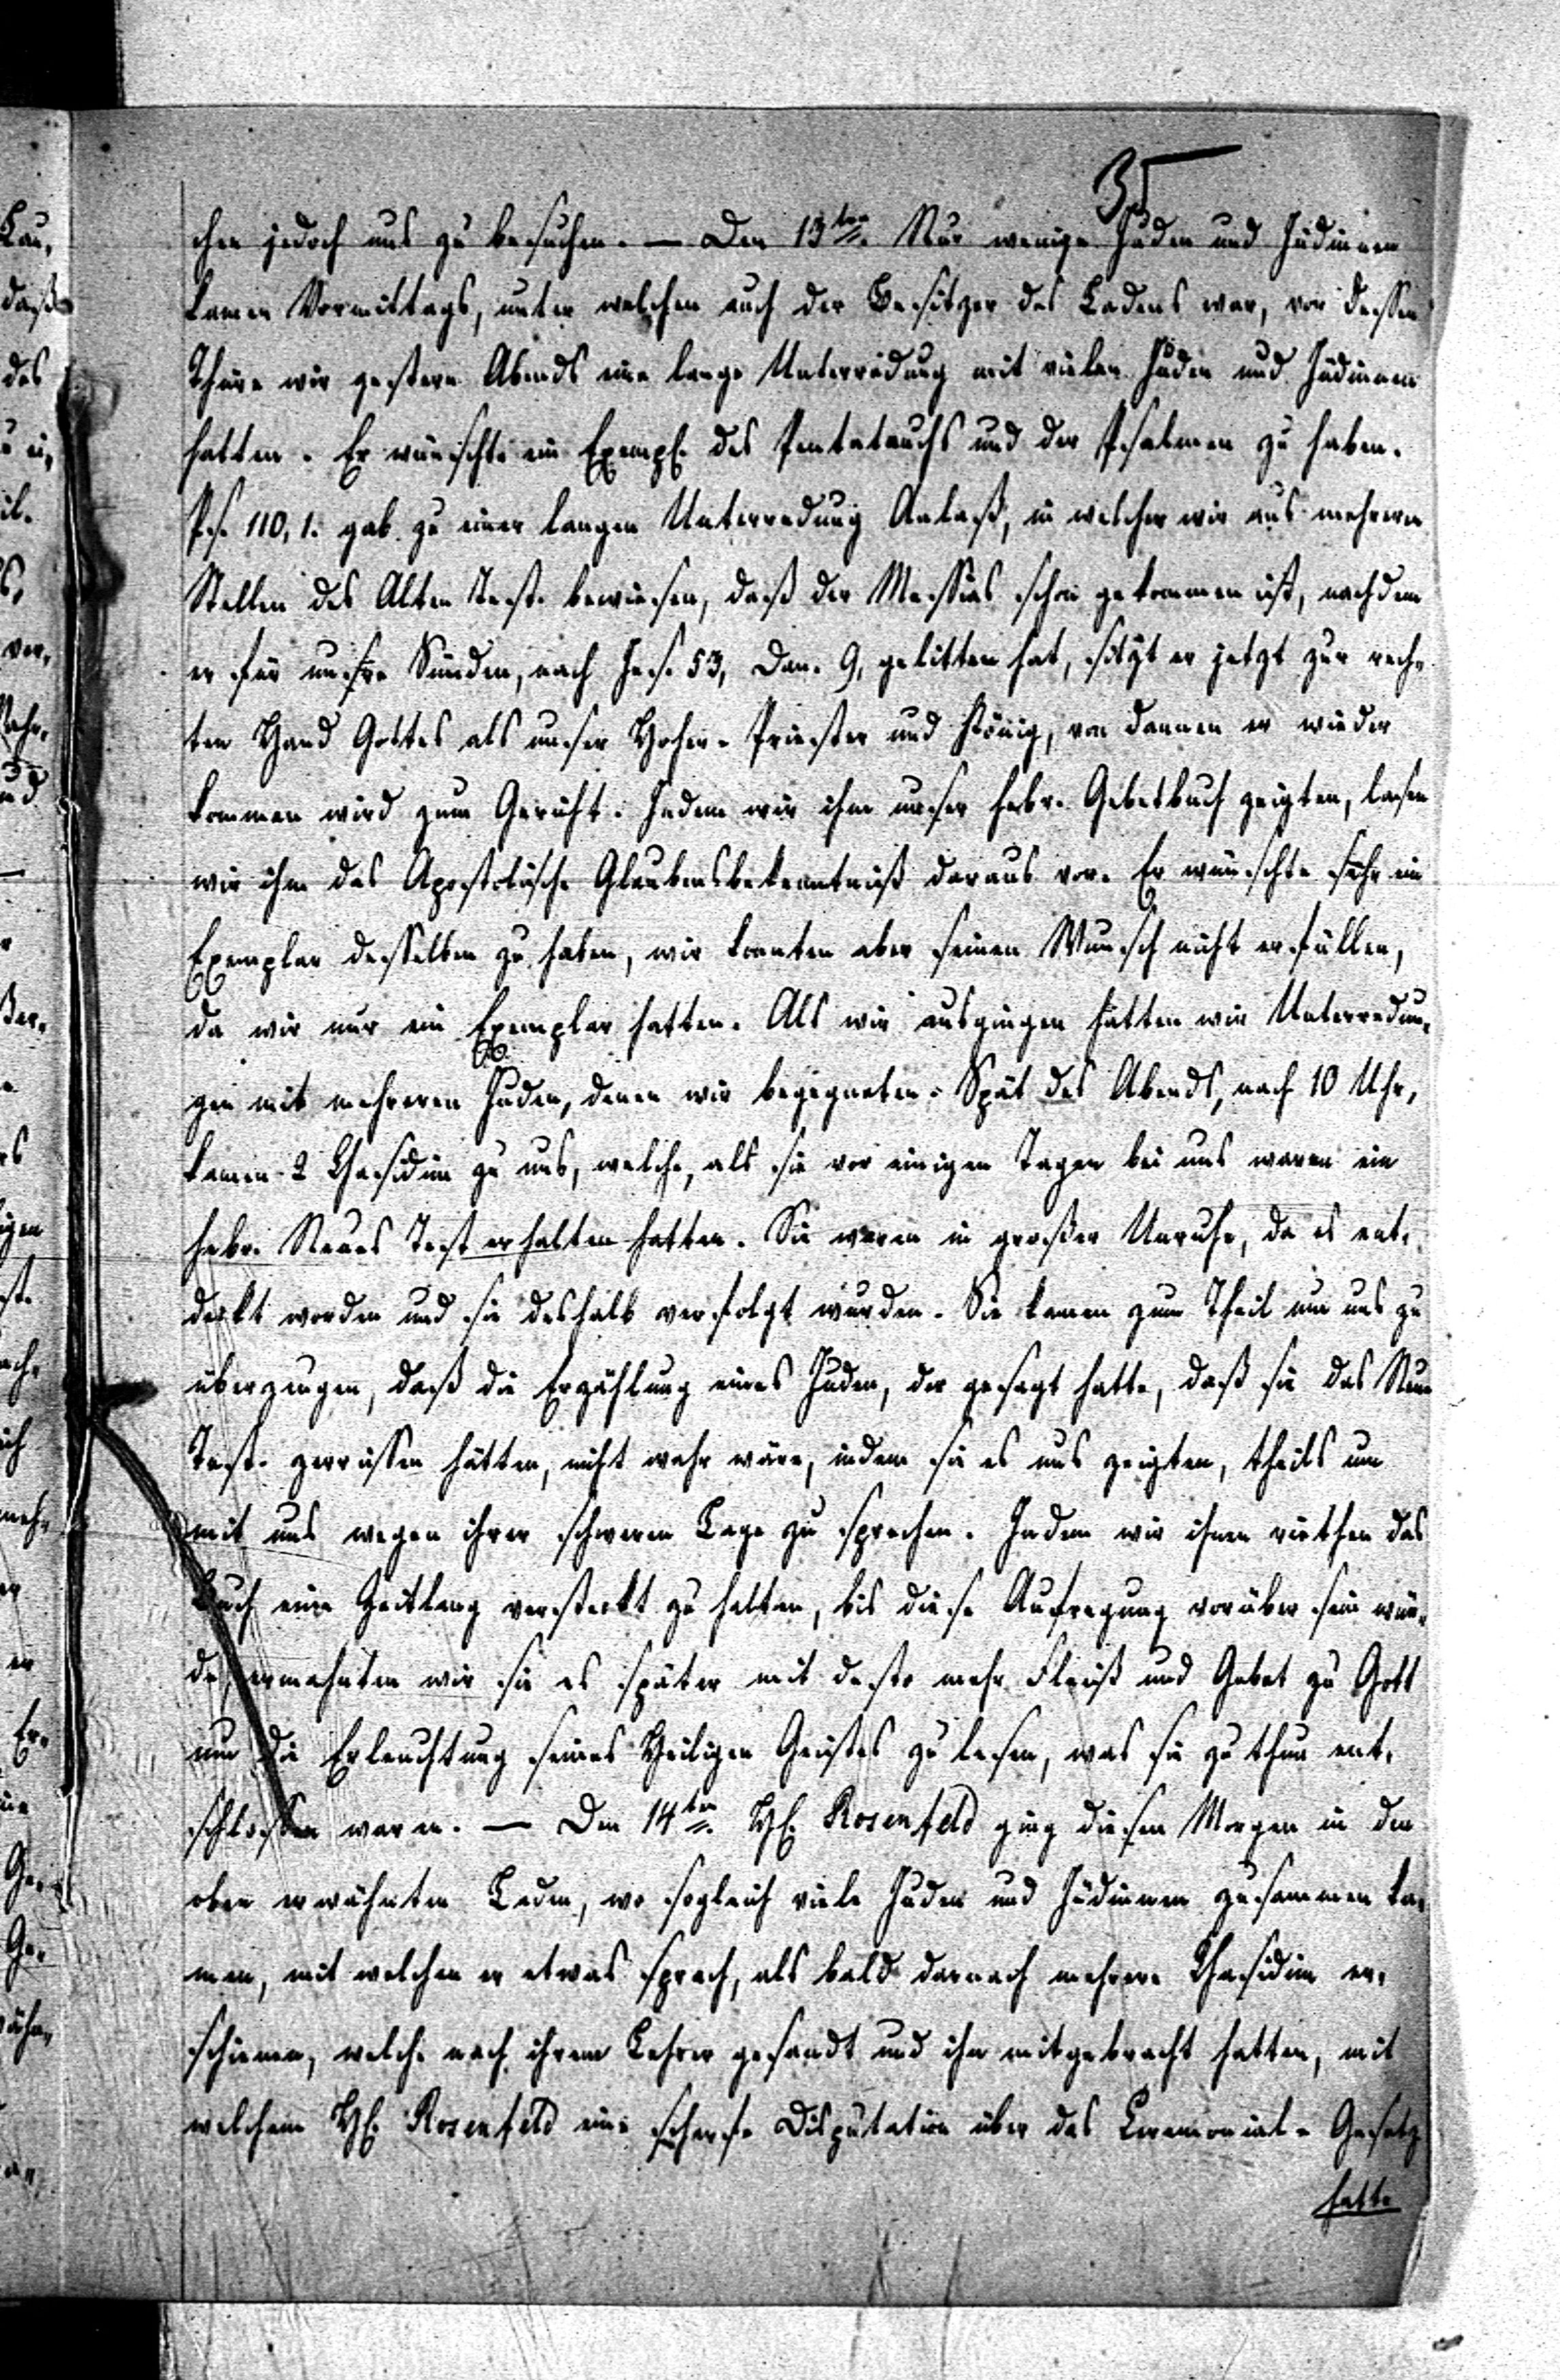 35
chen jedoch uns zu besuchen. — Den 13ten. Nur wenige Juden und Jüdinnen
kamen Vormittags, unter welchen auch der Besitzer des Ladens war, vor dessen
Thüre wir gestern Abends eine lange Unterredung mit vielen Juden und Jüdinnen
hatten. Er wünschte ein Exempl. des Pentateuchs und der Psalmen zu haben.
Ps. 110, 1. gab zu einer langen Unterredung Anlaß, in welcher wir aus mehrern
Stellen des Alten Test. bewiesen, daß der Messias schon gekommen ist, nachdem
er für unsre Sünden, nach Jes. 53, Dan. 9, gelitten hat, sitzt er jetzt zur rech-
ten Hand Gottes als unser Hoher-Priester und König, von dannen er wieder
kommen wird zum Gericht. Indem wir ihm unser hebr. Gebetbuch zeigten, lasen
wir ihm das Apostolische Glaubensbekenntniß daraus vor. Er wünschte sehr ein
Exemplar desselben zu haben, wir konnten aber seinen Wunsch nicht erfüllen,
da wir nur ein Exemplar hatten. Als wir ausgingen hatten wir Unterredun-
gen mit mehreren Juden, denen wir begegneten. Spät des Abends, nach 10 Uhr,
kamen 2 Chasidim zu uns, welche, als sie vor einigen Tagen bei uns waren ein
hebr. Neues Test erhalten hatten. Sie waren in großer Unruhe, da es ent-
deckt worden und sie deshalb verfolgt wurden. Sie kamen zum Theil um uns zu
überzeugen, daß die Erzählung eines Juden, der gesagt hatte, daß sie das Neue
Test. zerrissen hätten, nicht wahr wäre, indem sie es uns zeigten, theils um
mit uns wegen ihrer schweren Lage zu sprechen. Indem wir ihnen riethen das
Buch eine Zeitlang versteckt zu halten, bis diese Aufregung vorüber sein wür-
de, ermahnten wir sie es später mit desto mehr Fleiß und Gebet zu Gott
um die Erleuchtung seines Heiligen Geistes zu lesen, was sie zu thun ent-
schlossen waren. — Den 14ten. H. Rosenfeld ging diesen Morgen in den
oben erwähnten Laden, wo sogleich viele Juden und Jüdinnen zusammen ka-
men, mit welchen er etwas sprach, als bald darnach mehrere Chasidim er-
schienen, welche nach ihrem Lehrer gesandt und ihn mitgebracht hatten, mit
welchem H. Rosenfeld eine scharfe Disputation über das Ceremonial-Gesetz
hatte